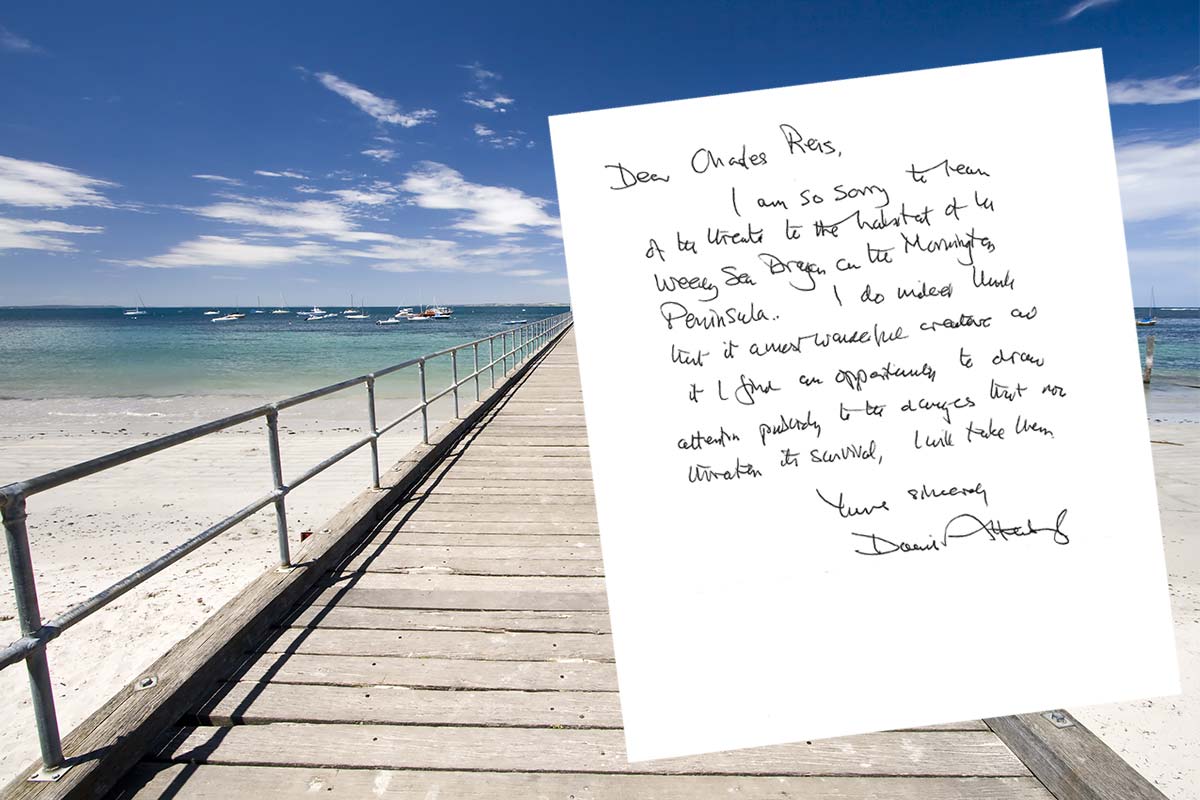 Dear Charles Reis,
I am so sorry to learn
of the threats to the habitat of the
Weedy Sea Dragon on the Mornington
Peninsula.. I do indeed think
that it a most wonderful creature and
if I find an opportunity to draw
attention publicly to the dangers that now
threaten its survival, I will take them.
Yours sincerely
David Attenborough